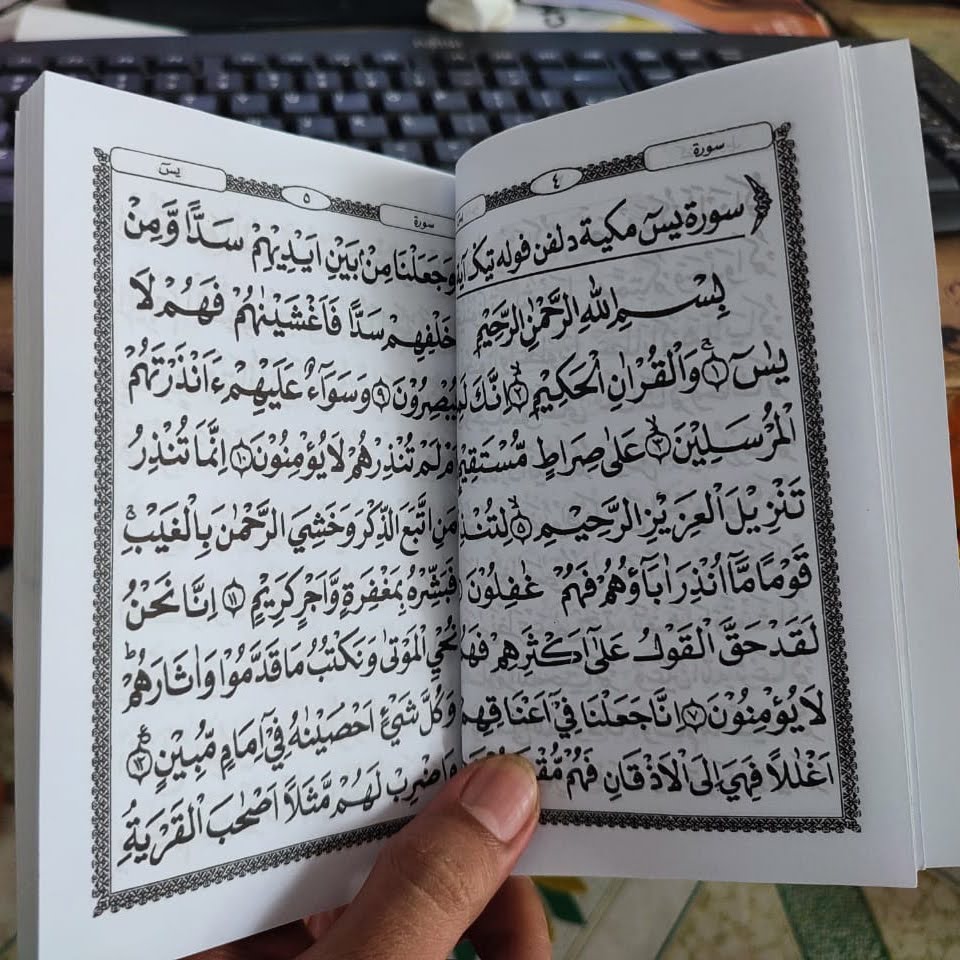 سورة
٤
سورة يسٓ مكية د لفن فوله تيڬ
بِسْمِ اللهِ الرَّحْمٰنِ الرَّحِيْمِ
يٰسٓ ۝١ وَالْقُرْاٰنِ الْحَكِيْمِ ۝٢ اِنَّكَ
الْمُرْسَلِيْنَ ۝٣ عَلٰى صِرَاطٍ مُّسْتَقِيْمٍ
تَنْزِيْلَ الْعَزِيْزِ الرَّحِيْمِ ۝٥ لِتُنْذِ
قَوْمًا مَّآ اُنْذِرَ اٰبَآؤُهُمْ فَهُمْ غٰفِلُوْنَ
لَقَدْ حَقَّ الْقَوْلُ عَلٰٓى اَكْثَرِهِمْ فَهُمْ
لَا يُؤْمِنُوْنَ ۝٧ اِنَّا جَعَلْنَا فِيْٓ اَعْنَاقِهِمْ
اَغْلٰلًا فَهِيَ اِلَى الْاَذْقَانِ فَهُمْ
سورة
٥
يسٓ
وَجَعَلْنَا مِنْۢ بَيْنِ اَيْدِيْهِمْ سَدًّا وَّمِنْ
خَلْفِهِمْ سَدًّا فَاَغْشَيْنٰهُمْ فَهُمْ لَا
يُبْصِرُوْنَ ۝٩ وَسَوَآءٌ عَلَيْهِمْ ءَاَنْذَرْتَهُمْ
لَمْ تُنْذِرْهُمْ لَا يُؤْمِنُوْنَ ۝١٠ اِنَّمَا تُنْذِرُ
مَنِ اتَّبَعَ الذِّكْرَ وَخَشِيَ الرَّحْمٰنَ بِالْغَيْبِ
فَبَشِّرْهُ بِمَغْفِرَةٍ وَّاَجْرٍ كَرِيْمٍ ۝١١ اِنَّا نَحْنُ
نُحْيِ الْمَوْتٰى وَنَكْتُبُ مَا قَدَّمُوْا وَاٰثَارَهُمْ
وَكُلَّ شَيْءٍ اَحْصَيْنٰهُ فِيْٓ اِمَامٍ مُّبِيْنٍ ۝١٢
وَاضْرِبْ لَهُمْ مَّثَلًا اَصْحٰبَ الْقَرْيَةِ